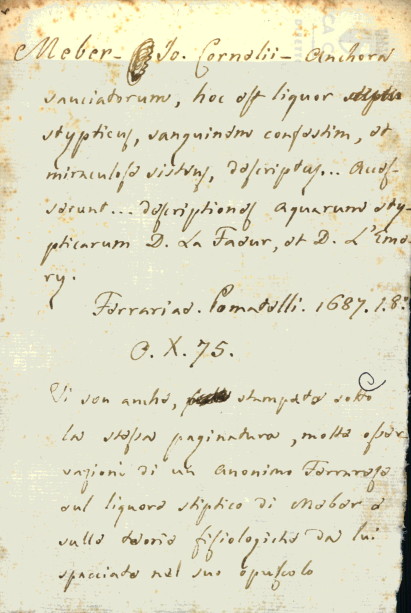 Meber - Jo. Cornelii - Anchora
sauciatorum, hoc est liquor
stypticus, sanguinem confestim, et
miraculose sistens, descriptus... Acces-
serunt... descriptiones aquarum sty-
pticarum D. La Faeur, et D. L'Eme-
ry.
Ferrariae. Pomatelli. 1687. 8.°
O. X. 75.
Vi son anche, stampate sotto
la stessa paginatura, molte osser
vazioni di un anonimo Ferrarese
sul liquore stiptico di Meber e
sulle teorie fisiologiche da lui
spacciate nel suo opuscolo